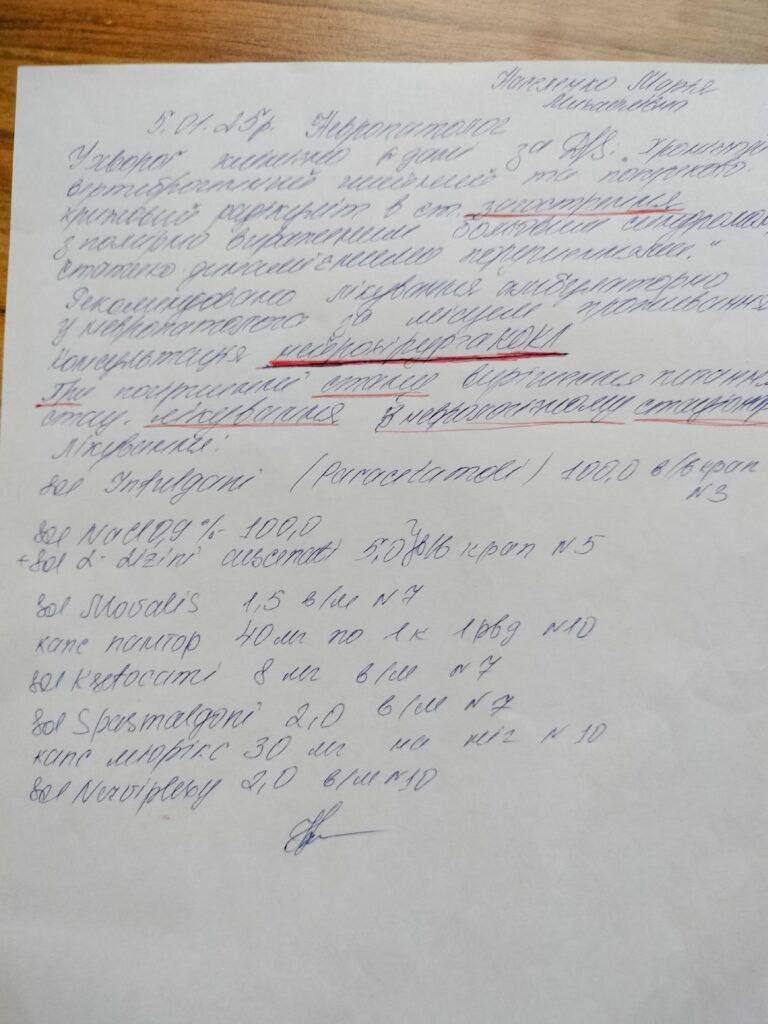 Марія
5.01.25р. Невропатолог
У хворої клінічно дані за DS:
вертеброгенний шийний та попереково
крижовий радикуліт в ст. загострення
з помірно вираженим больовим синдромом,
статико-динамічними
Рекомендовано лікування амбулаторно
у невропатолога за місцем проживання
Консультація нейрохірурга КОКЛ
При погіршенні стану вирішення питання
стац. лікування в неврологічному
Лікування:
Sol Infulgani (Paracetamoli) 100,0 в/в крап
N3
Sol NaCl 0,9% 100,0
+ Sol L-lizini aescinati 5,0 в/в крап N5
Sol Movalis 1,5 в/м N7
капс памтор 40 мг по 1к 1рвд N10
Sol Ksefocami 8 мг в/м N7
Sol Spasmalgoni 2,0 в/м N7
капс мюрікс 30 мг на ніч N10
Sol Nerviplexy 2,0 в/м N10